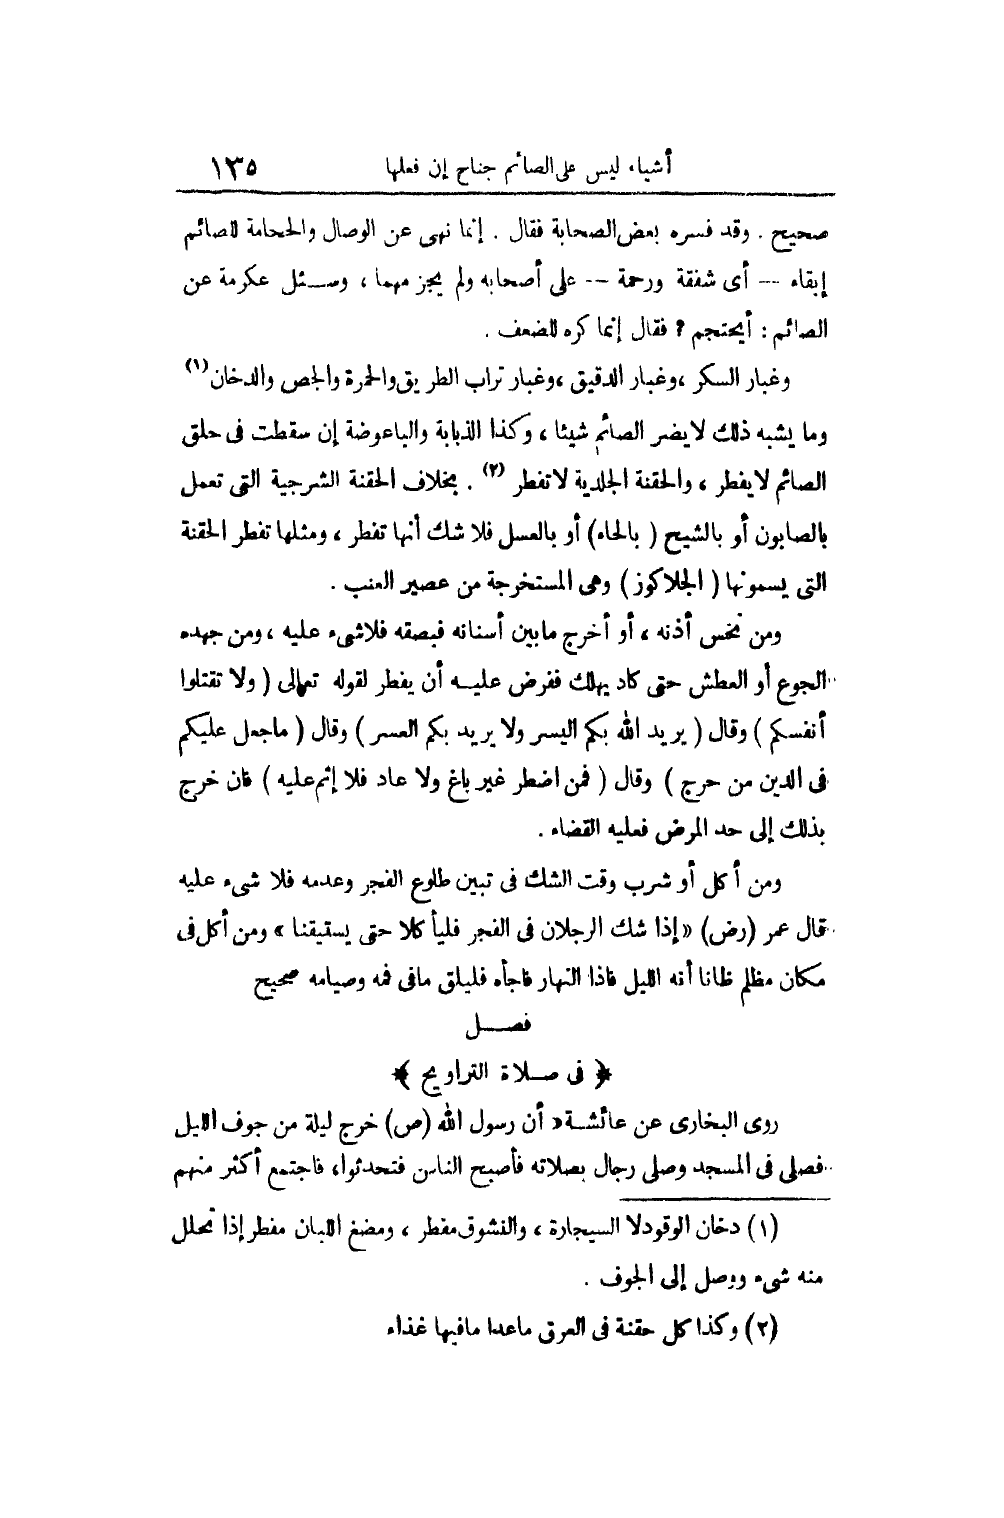 أشياء ليس على الصائم جناح إن فعلها ١٣٥
صحيح . وقد فسره بعض الصحابة فقال . إنما نهى عن الوصال والحجامة للصائم
إبقاء -- أى شفقة ورحمة -- على أصحابه ولم يجز مهما ، وسئل عكرمة عن
الصائم : أيحتجم ؟ فقال إنما كره للضعف .
وغبار السكر ،وغبار الدقيق ،وغبار تراب الطريق والحمرة والجص والدخان (١)
وما يشبه ذلك لا يضر الصائم شيئا ، وكذا الذبابة والباعوضة إن سقطت فى حلق
الصائم لا يفطر ، والحقنة الجلدية لا تفطر (٢) . بخلاف الحقنة الشرجية التى تعمل
بالصابون أو بالشيح ( بالحاء) أو بالعسل فلا شك أنها تفطر ، ومثلها تفطر الحقنة
التى يسمونها ( الجلاكوز ) وهى المستخرجة من عصير العنب .
ومن نخس أذنه ، أو أخرج مابين أسنانه فبصقه فلاشىء عليه ،ومن جهده
الجوع أو العطش حتى كاد يهلك ففرض عليه أن يفطر لقوله تعالى ( ولا تقتلوا
أنفسكم ) وقال ( يريد الله بكم اليسر ولا يريد بكم العسر ) وقال ( ماجعل عليكم
فى الدين من حرج ) وقال ( فمن اضطر غير باغ ولا عاد فلا إثم عليه ) فان خرج
بذلك إلى حد المرض فعليه القضاء .
ومن أكل أو شرب وقت الشك فى تبين طلوع الفجر وعدمه فلا شىء عليه
قال عمر (رض) «إذا شك الرجلان فى الفجر فليأ كلا حتى يستيقنا » ومن أكل فى
مكان مظلم ظانا أنه الليل فاذا النهار فاجأه فليلق مافى فمه وصيامه صحيح
فصل
﴿ فى صلاة التراويح ﴾
روى البخارى عن عائشة« أن رسول الله (ص) خرج ليلة من جوف الليل
فصلى فى المسجد وصلى رجال بصلاته فأصبح الناس فتحدثوا، فاجتمع أكثر منهم
(١) دخان الوقودلا السيجارة ، والنشوق مفطر ، ومضغ اللبان مفطر إذا تحلل
منه شىء ووصل إلى الجوف .
(٢) وكذا كل حقنة فى العرق ماعدا مافيها غذاء